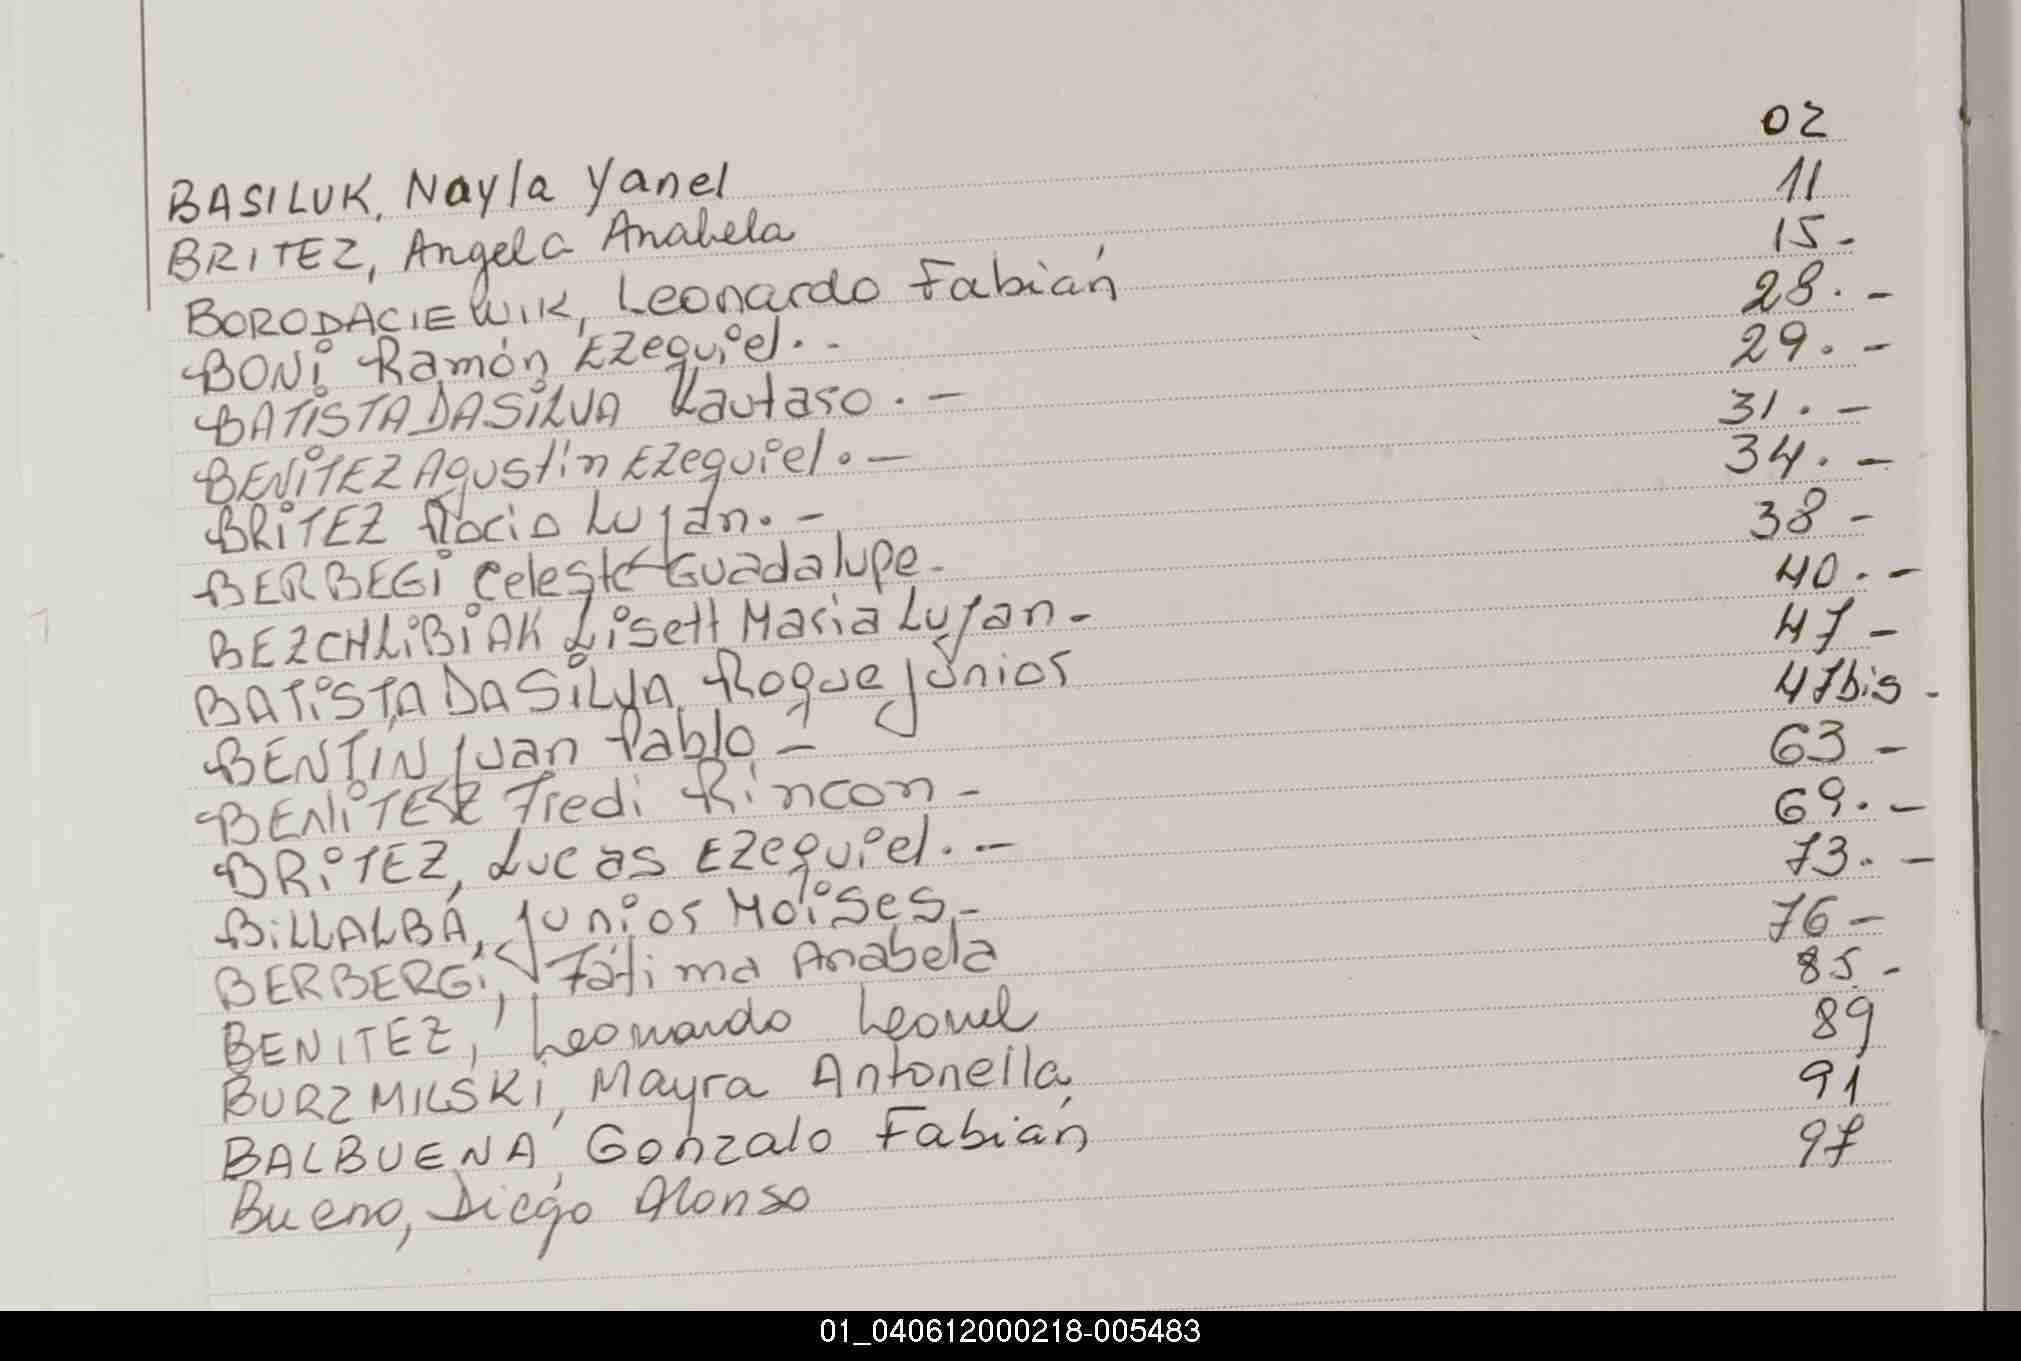 BASILUK, Nayla Yanel 02
BRITEZ, Angela Anabela 11
BORODACIEWIK, Leonardo Fabián 15.-
BONI Ramón Ezequiel.- 28.-
BATISTA DA SILVA Lautaro.- 29.-
BENITEZ Agustin Ezequiel.- 31.-
BRITEZ Rocio Lujan.- 34.-
BERBEGI Celeste Guadalupe- 38-
BEZCHLIBIAK Lisett Maria Lujan- 40.-
BATISTA DA SILVA Roque Junior 47-
BENTIN Juan Pablo- 47bis-
BENITEZ Fredi Rincon- 63-
BRITEZ, Lucas Ezequiel.- 69.-
BILLALBA, Junior Moises.- 73.-
BERBERGI, Fátima Anabela 76-
BENITEZ, Leonardo Leonel 85-
BURZMILSKI, Mayra Antonella 89
BALBUENA, Gonzalo Fabián 91
Bueno, Diego Alonso 97
01_040612000218-005483